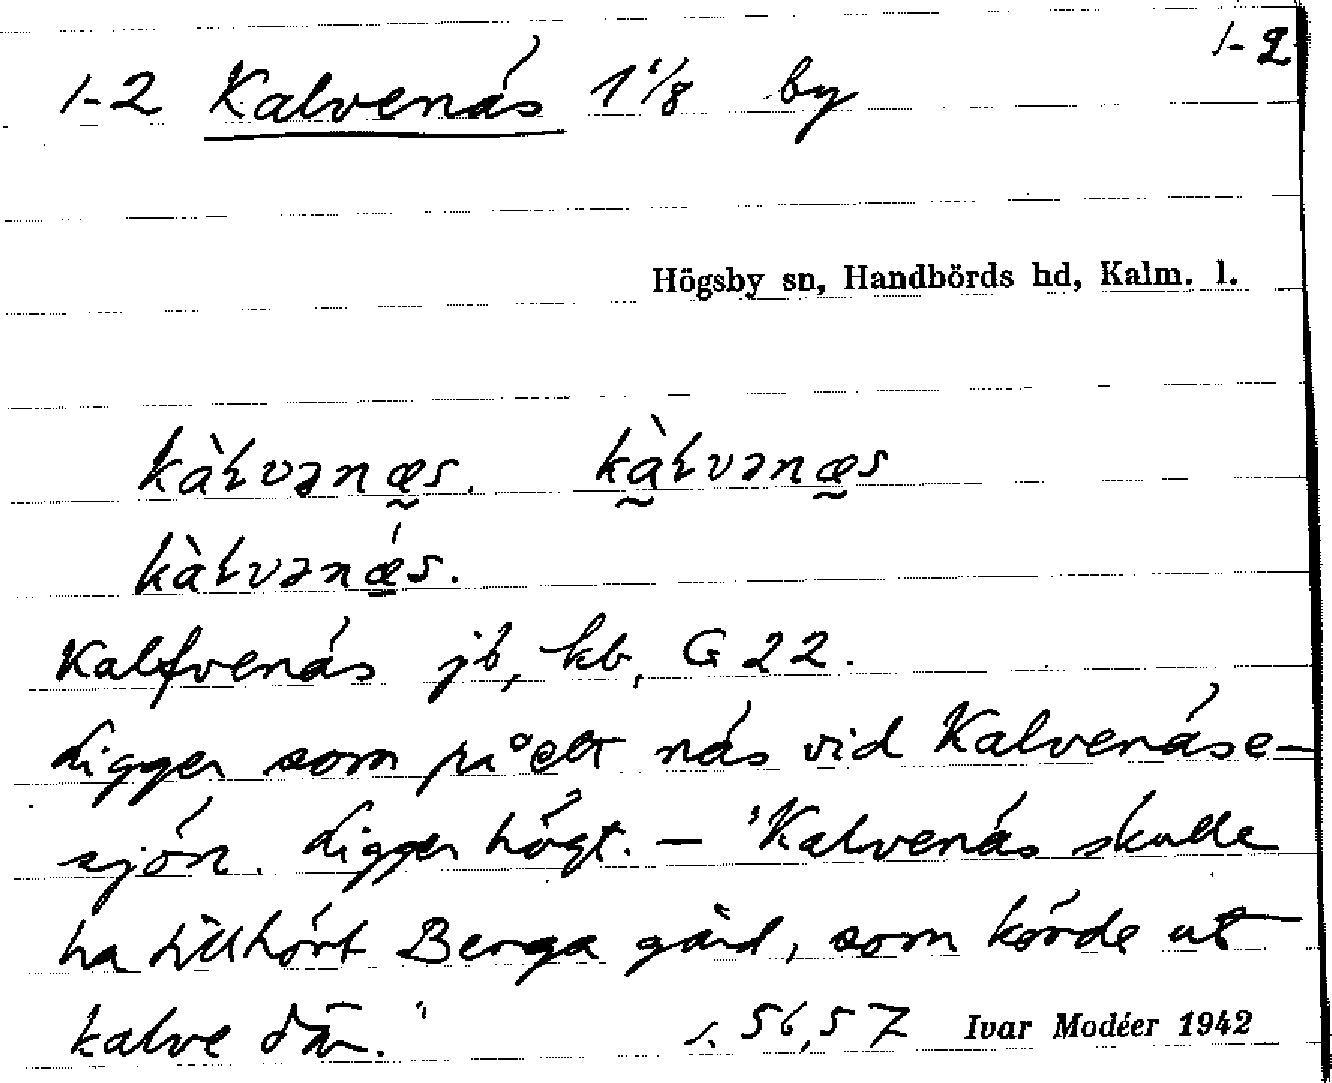 1-2
1-2 Kalvenäs 1 1/8 by
Högsby sn, Handbörds hd, Kalm. l.
kàɫvənæ̰s. kà̰ɫvənæ̰s
kàɫvənǽ̠s.
Kalfvenäs jb, kb, G 22.
Ligger som på ett näs vid Kalvenäse-
sjön. Ligger högt. – "Kalvenäs skulle
ha tillhört Berga gård, som körde ut
kalve där." s. 56, 57 Ivar Modéer 1942